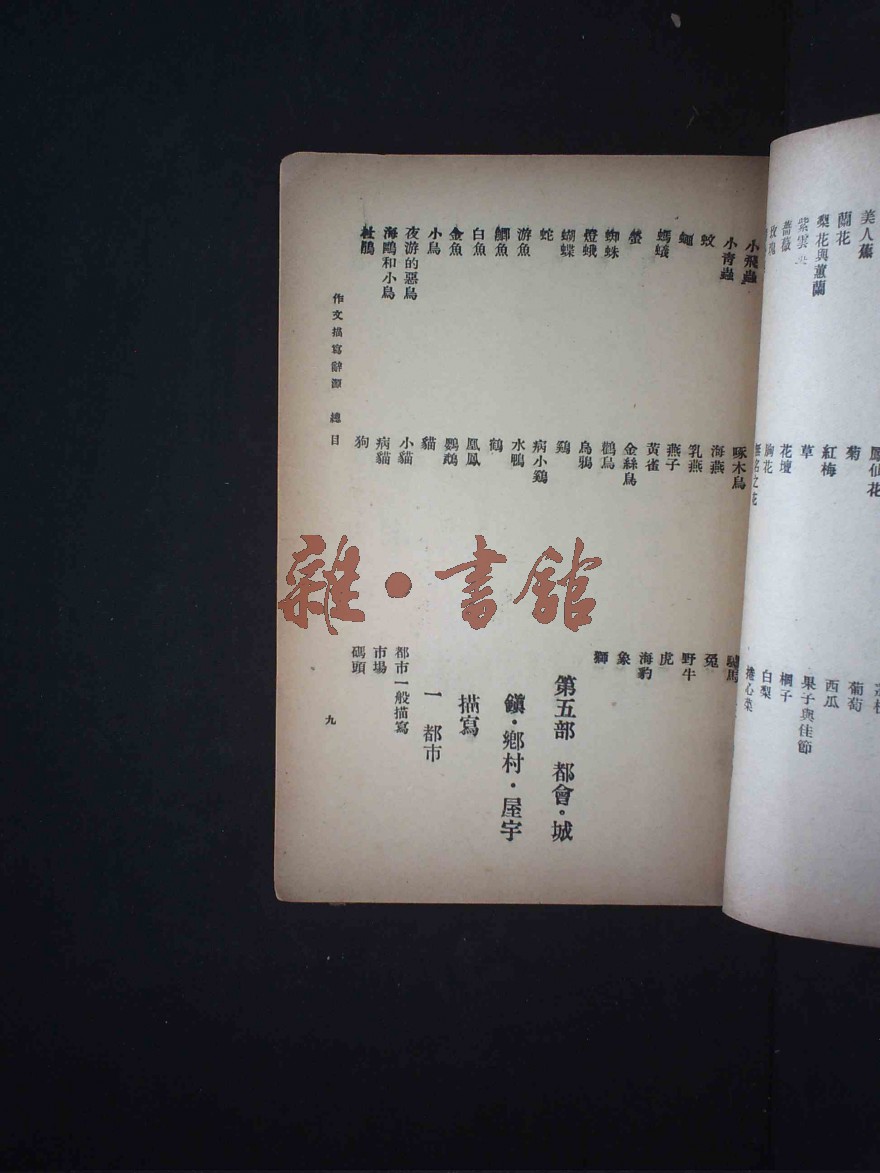 美人蕉
蘭花
梨花與蕙蘭
紫雲
薔薇
玫瑰
鳳仙花
菊
紅梅
草
花壇
無名之花
葡萄
西瓜
果子與佳節
橘子
白梨
捲心菜
小飛蟲
小青蟲
蚊
蠅
螞蟻
螢
蜘蛛
燈蛾
蝴蝶
蛇
游魚
鯽魚
白魚
金魚
小鳥
夜游的惡鳥
海鷗和小鳥
杜鵑
啄木鳥
海燕
乳燕
燕子
黃雀
金絲鳥
鸛鳥
烏鴉
鷄
病小鷄
水鴨
鶴
凰鳳
鸚鵡
貓
小貓
病貓
狗
驢馬
兔
野牛
虎
海豹
象
獅
第五部 都會·城
鎭·鄉村·屋宇
描寫
一 都市
都市一般描寫
市場
碼頭
作文描寫辭源 總目
九
雜·書館